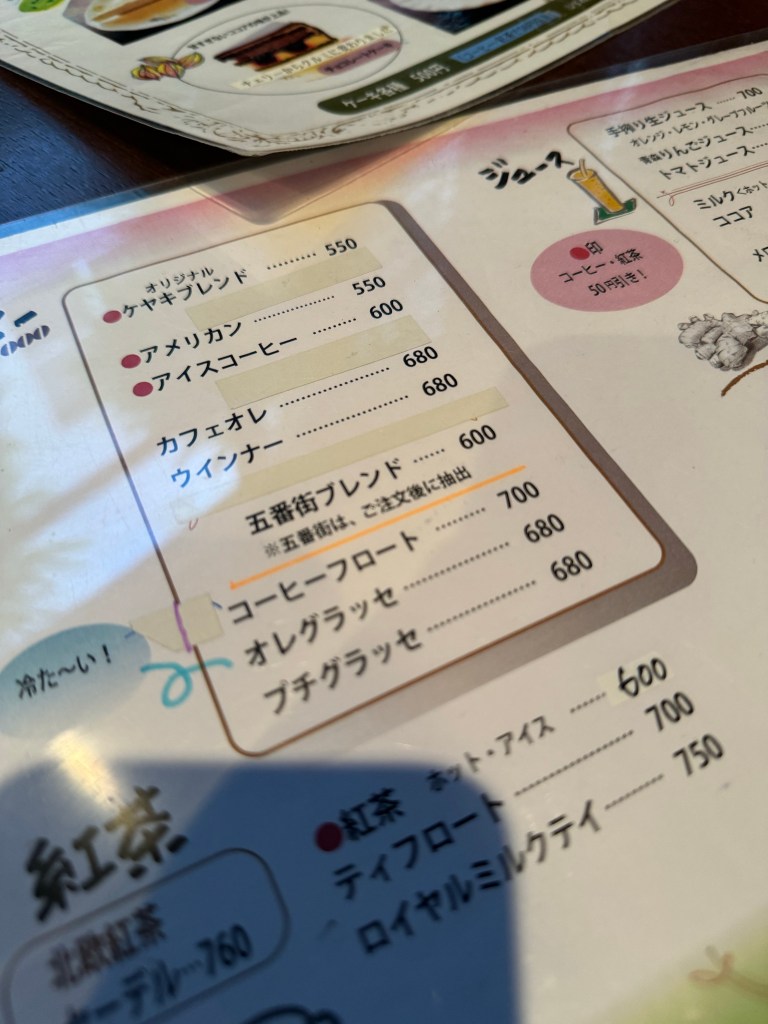 ケーキ各種 500円
ジュース
手搾り生ジュース …… 700
オレンジ・レモン・グレープフルーツ
青森りんごジュース…
トマトジュース…
ミルク<ホット
ココア
●印
コーヒー・紅茶
50円引き!
オリジナル
●ケヤキブレンド ……… 550
●アメリカン ……………… 550
●アイスコーヒー ……… 600
カフェオレ ……………… 680
ウインナー ……………… 680
五番街ブレンド …… 600
※五番街は、ご注文後に抽出
コーヒーフロート ……… 700
オレグラッセ ……………… 680
プチグラッセ ……………… 680
冷た〜い!
紅茶
●紅茶 ホット・アイス …… 600
ティフロート ……………… 700
ロイヤルミルクティ ……… 750
北欧紅茶
セーデル…760